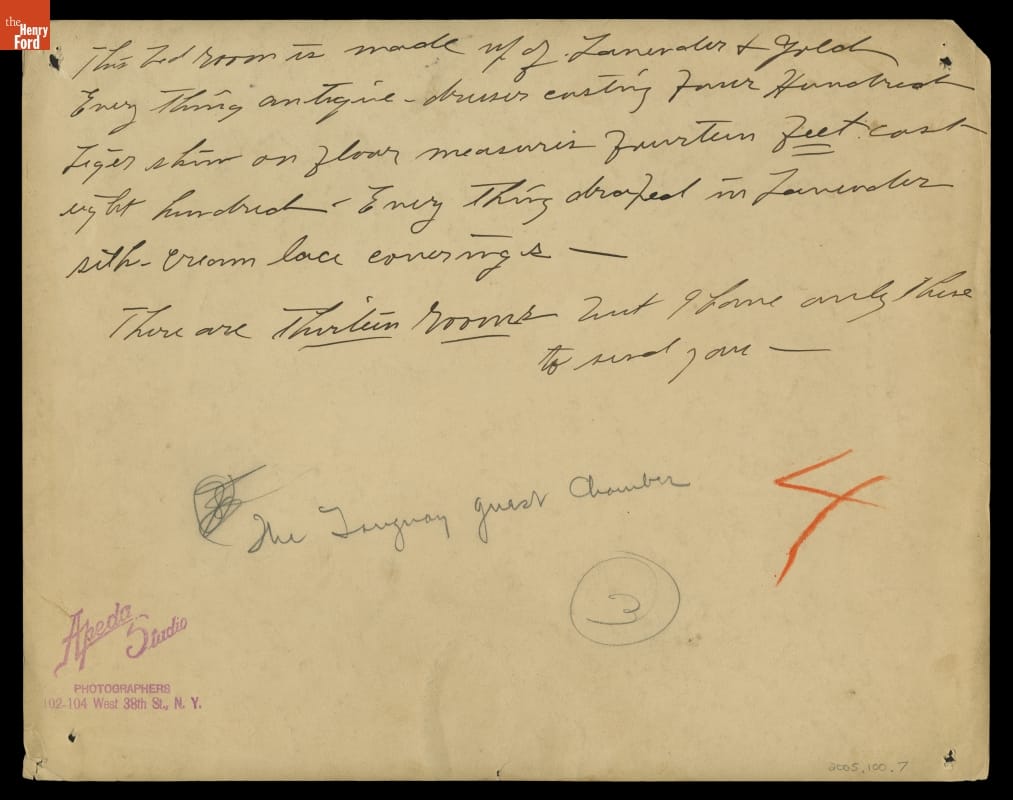 the
Henry
Ford
This bed room is made up of Lavender & Gold
Every thing antique - dresser costing Four Hundred
Tiger skin on floor measures fourteen feet. cost
eight hundred - Every thing draped in Lavender
silk - cream lace coverings —
There are Thirteen Rooms but I have only these
to send you —
The Tanguay guest Chamber
4
3
Apeda
Studio
PHOTOGRAPHERS
102-104 West 38th St., N. Y.
2005.100.7